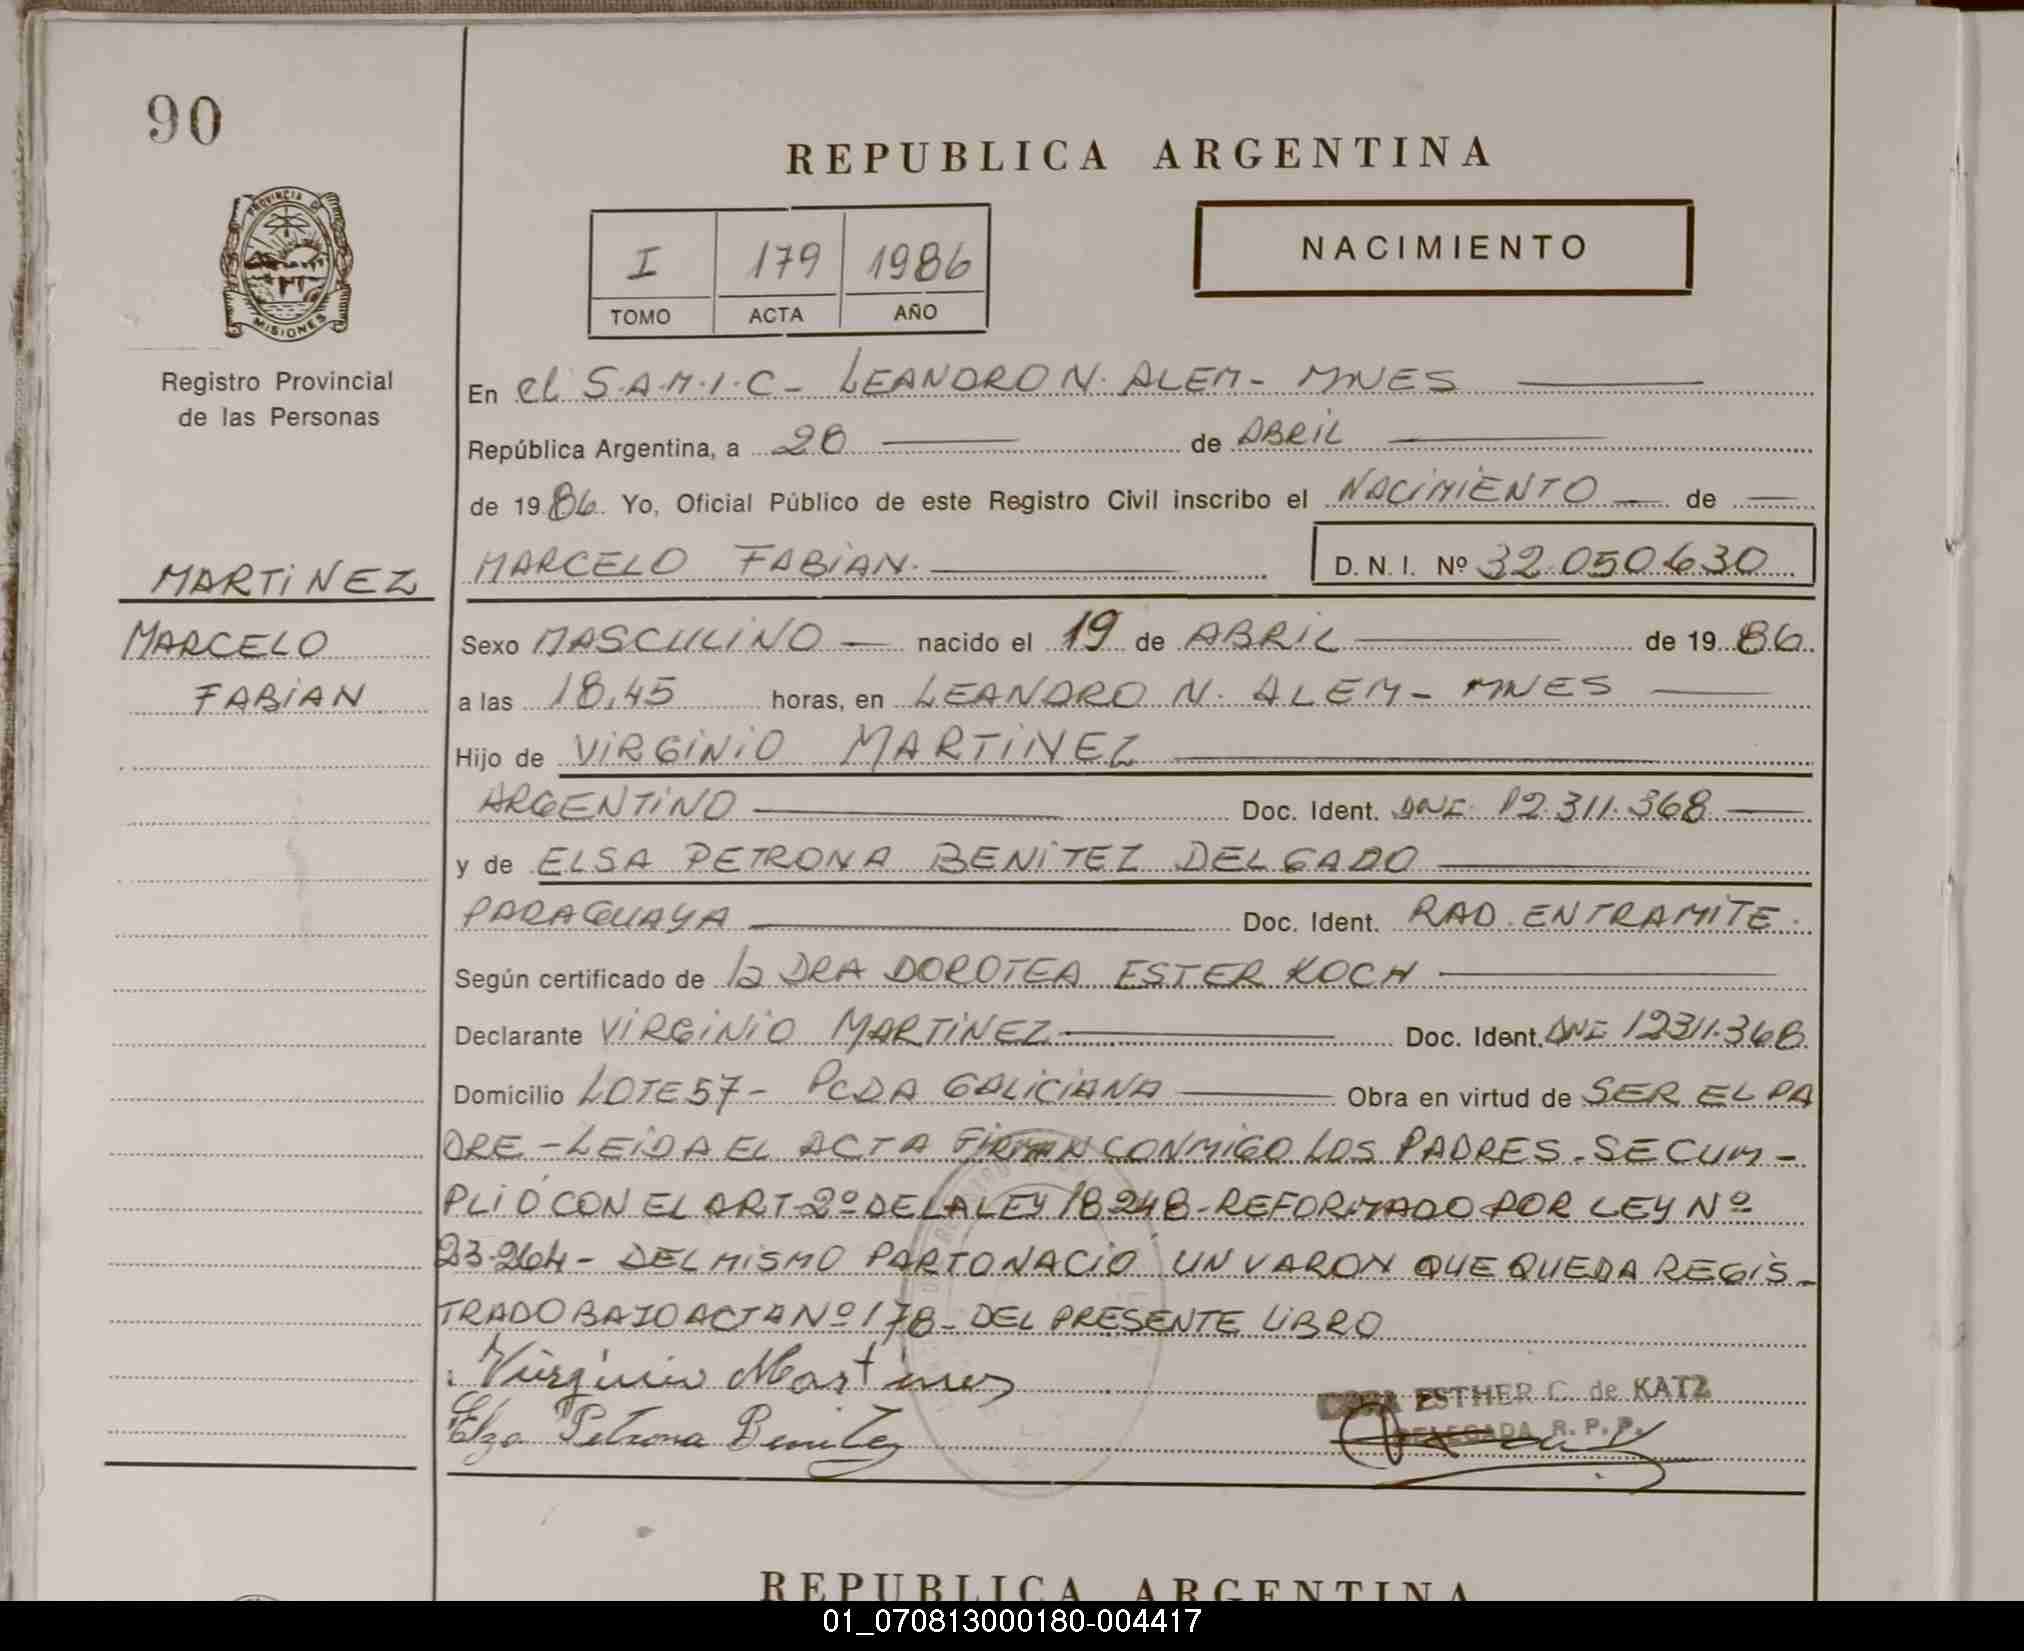 90
REPUBLICA ARGENTINA
PROVINCIA DE
MISIONES
Registro Provincial
de las Personas
I 179 1986
TOMO ACTA AÑO
NACIMIENTO
En el S.A.M.I.C - LEANDRO N. ALEM - MNES
República Argentina, a 28 de ABRIL
de 1986. Yo, Oficial Público de este Registro Civil inscribo el NACIMIENTO de
MARCELO FABIAN. D. N. I. Nº 32.050.630
MARTINEZ
MARCELO
FABIAN
Sexo MASCULINO nacido el 19 de ABRIL de 1986.
a las 18,45 horas, en LEANDRO N. ALEM - MNES
Hijo de VIRGINIO MARTINEZ
ARGENTINO Doc. Ident. DNI 12.311.368
y de ELSA PETRONA BENITEZ DELGADO
PARAGUAYA Doc. Ident. RAD. EN TRAMITE.
Según certificado de la DRA DOROTEA ESTER KOCH
Declarante VIRGINIO MARTINEZ Doc. Ident. DNI 12311.368
Domicilio LOTE 57 - PCDA GALICIANA Obra en virtud de SER EL PA
DRE - LEIDA EL ACTA FIRMAN CONMIGO LOS PADRES - SE CUM -
PLIÓ CON EL ART 2º DE LA LEY 18248 - REFORMADO POR LEY Nº
23.264 - DEL MISMO PARTO NACIÓ UN VARON QUE QUEDA REGIS -
TRADO BAJO ACTA Nº 178 - DEL PRESENTE LIBRO
Virginio Martines
Elza Petrona Benitez
ESTHER C. de KATZ
DELEGADA R. P. P.
REPUBLICA ARGENTINA
01_070813000180-004417